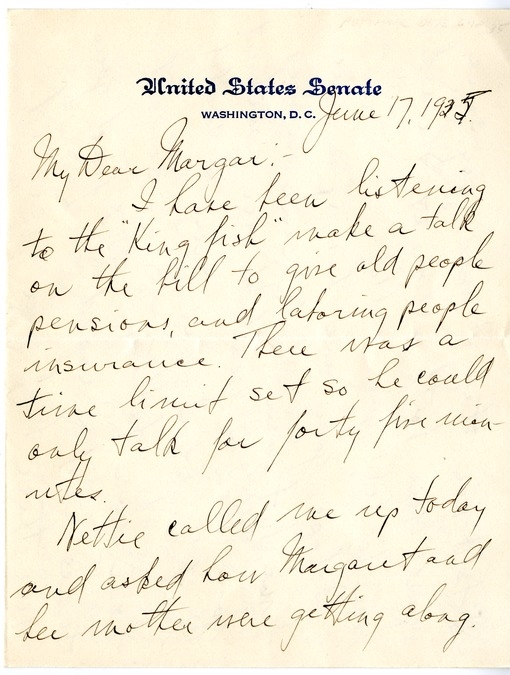 United States Senate
WASHINGTON, D. C.
June 17, 1935.
My Dear Margar:-
I have been listening
to the "King fish" make a talk
on the bill to give old people
pensions, and laboring people
insurance. There was a
time limit set so he could
only talk for forty five min-
utes.
Nettie called me up today
and asked how Margaret and
her mother were getting along.